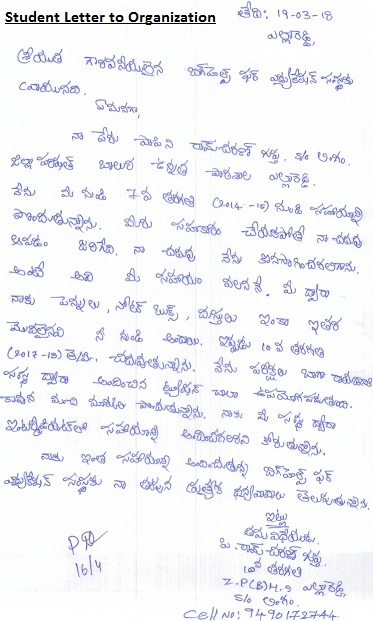 Student Letter to Organization
తేది: 19-03-18
ఎల్లారెడ్డి,
శ్రీయుత గౌరవనీయులైన బిగ్‌హెల్ప్ ఫర్ ఎడ్యుకేషన్ సంస్థకు
వ్రాయునది.
ఏమనగా,
నా పేరు రామ్ చరణ్ గుప్త. S/o లింగం.
జిల్లా పరిషత్ బాలుర ఉన్నత పాఠశాల ఎల్లారెడ్డి.
నేను మీ నుండి 7వ తరగతి (2014-15) నుండి సహాయాన్ని
పొందుతున్నాను. మీరు సహకారం చేయకపోతే నా చదువు
ఆపడం జరిగేది. నా చదువు నేను కొనసాగించగలిగాను.
అంటే అది మీ సహాయం వలననే. మీ ద్వారా
నాకు పెన్నులు, నోట్ బుక్స్, దుస్తులు ఇంకా ఇతర
మొదలైనవి మీ నుండి అందాయి. ఇప్పుడు 10వ తరగతి
(2017-18) చదువుతున్నాను. నేను పరీక్షలు బాగా
సంస్థ ద్వారా అందించిన ట్యూషన్ చాలా ఉపయోగపడుతుంది.
కావున మంచి మార్కులు పొందుతున్నాను. నాకు మీ సంస్థ ద్వారా
ఇంటర్మీడియట్‌లో సహాయాన్ని అందించగలరని కోరుతున్నాను.
నాకు ఇంత సహాయాన్ని అందించుతున్న బిగ్‌హెల్ప్ ఫర్
ఎడ్యుకేషన్ సంస్థకు నా తరపున ప్రత్యేక ధన్యవాదాలు తెలుపుతున్నాను.
ఇట్లు
తమ విధేయుడు.
రామ్ చరణ్ గుప్త
10వ తరగతి
Z.P(B)H.S ఎల్లారెడ్డి,
S/o లింగం.
Cell NO: 9490172744.
16/4